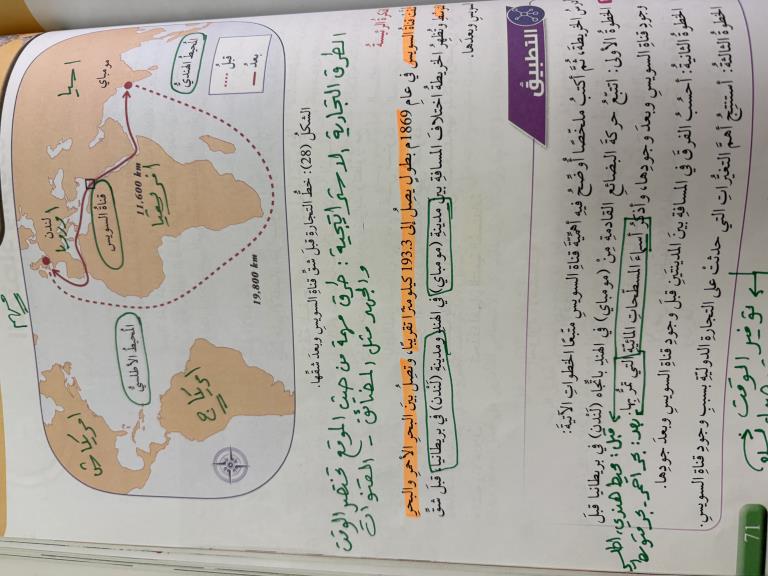 آسيا
المحيط الهندي
مومباي
قبل
بعد
11,600 km
افريقيا
قناة السويس
لندن
اوروبا
19,800 km
المحيط الأطلسي
امريكا ش
امريكا ج
مهم
الشكل (28): خط التجارة قبل شق قناة السويس وبعد شقها.
الطرق التجارية الاستراتيجية: طرق مهمة من حيث الموقع تختصر الوقت
والجهد مثل المضائق - القنوات
الفكرة الرئيسة
قناة السويس في عام 1869م بطول يصل إلى 193.3 كيلومترًا تقريبًا، وتصل بين البحر الأحمر والبحر
وتظهر الخريطة اختلاف المسافة بين مدينة (مومباي) في الهند ومدينة (لندن) في بريطانيا قبل شق
السويس وبعدها.
التطبيق
الخريطة ثم أكتب ملخصًا أوضح فيه أهمية قناة السويس متبعًا الخطوات الآتية:
الخطوة الأولى: أتتبع حركة البضائع القادمة من (مومباي) في الهند باتجاه (لندن) في بريطانيا قبل
وجود قناة السويس وبعد وجودها، وأذكر أسماء المسطحات المائية التي تمر بها.
قبل: محيط هندي، اطلسي
بعد: بحر احمر - بحر متوسط
الخطوة الثانية: أحسب الفرق في المسافة بين المدينتين قبل وجود قناة السويس وبعد وجودها.
الخطوة الثالثة: أستنتج أهم التغيرات التي حدثت على التجارة الدولية بسبب وجود قناة السويس.
توفير الوقت
71